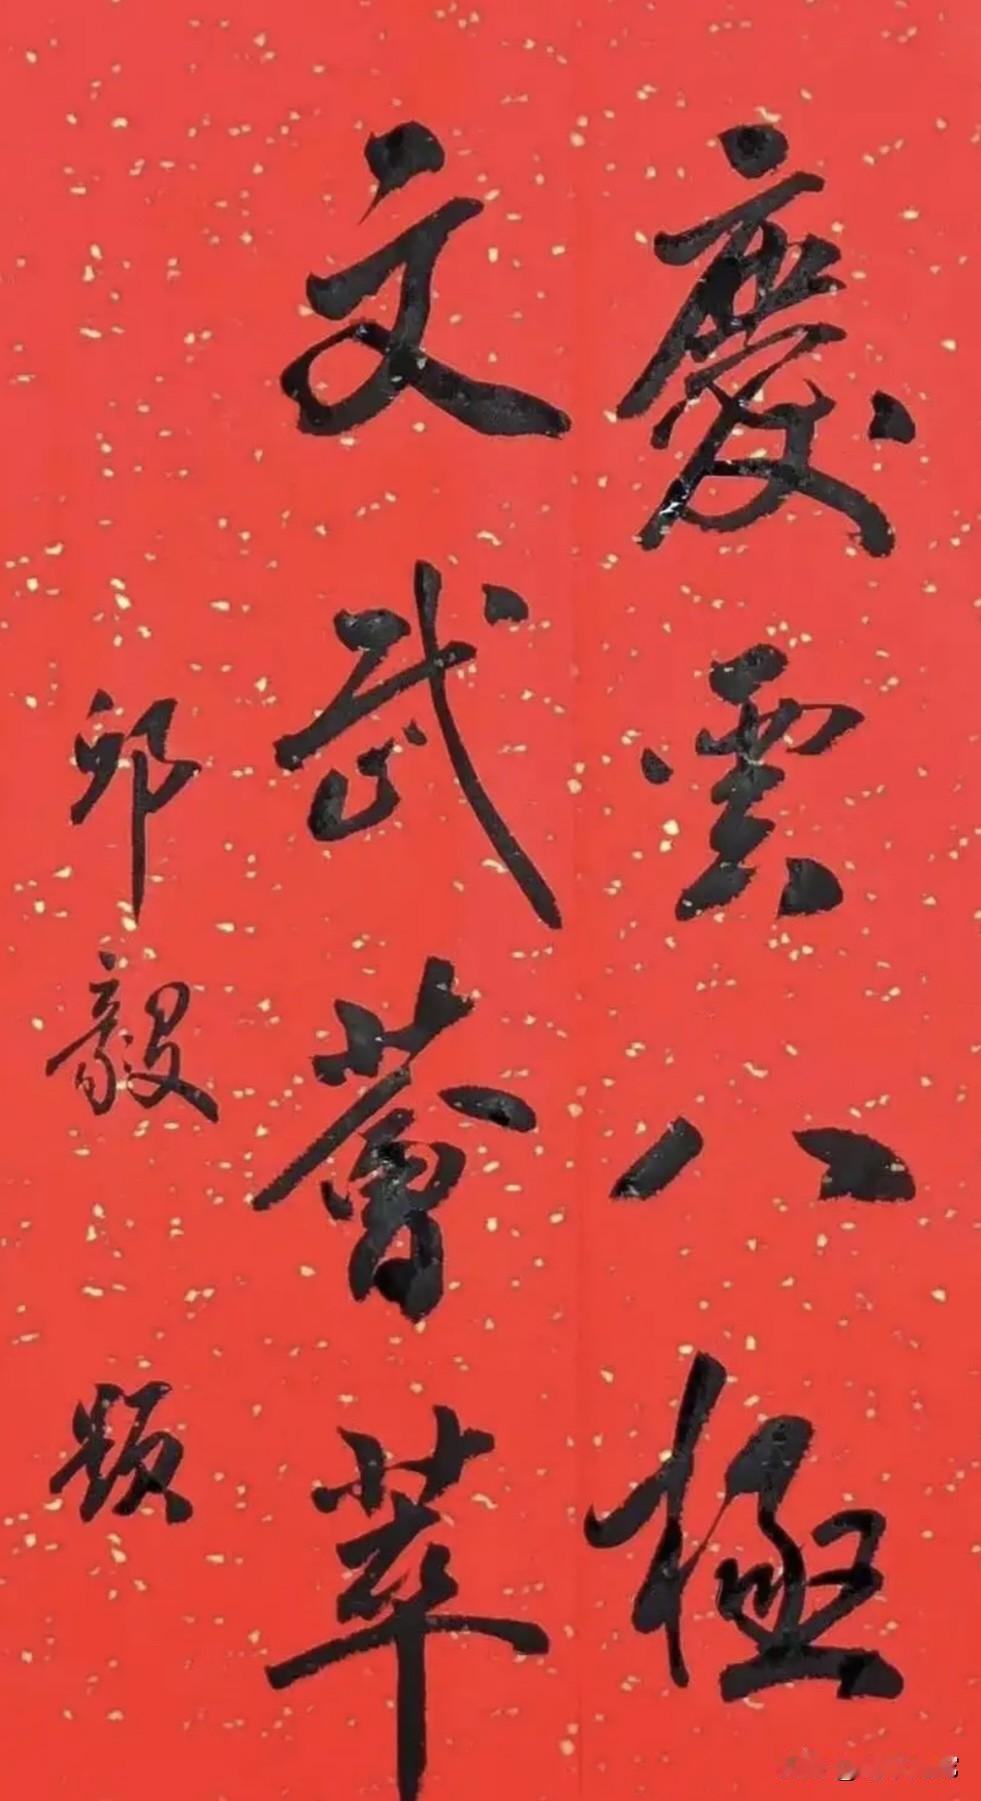 慶雲八極
文武薈萃
邱毅題